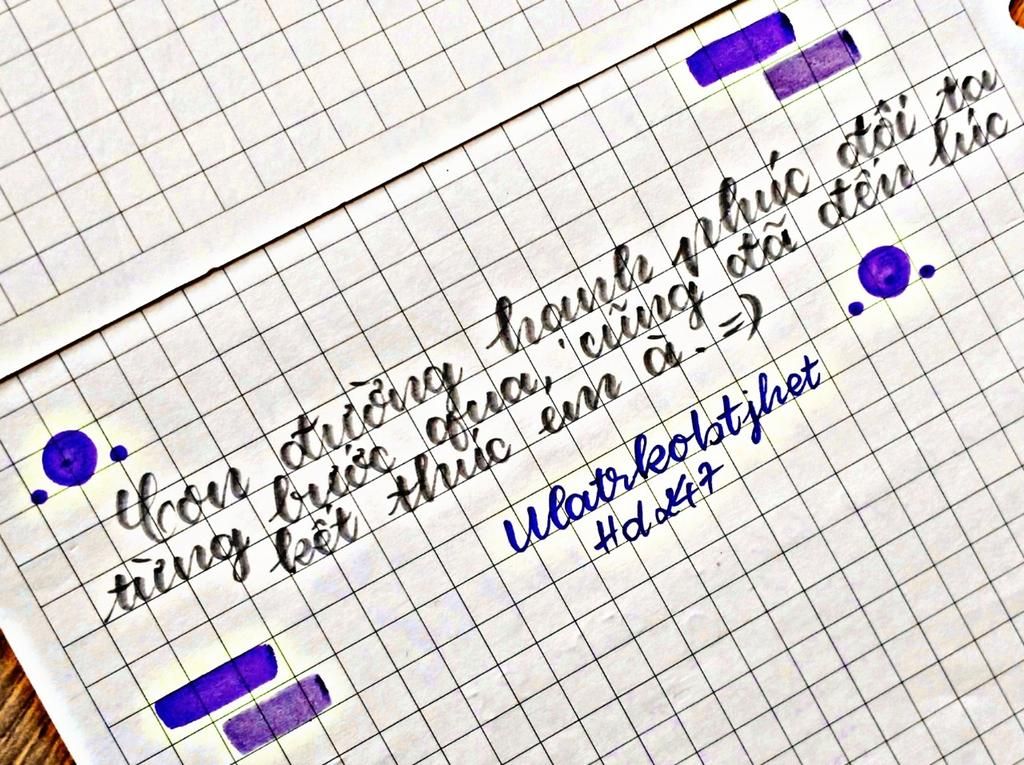 Con đường hạnh phúc đôi ta
từng bước qua, cũng đã đến lúc
kết thúc em à. =)
Watrkobtjhet
Hd247